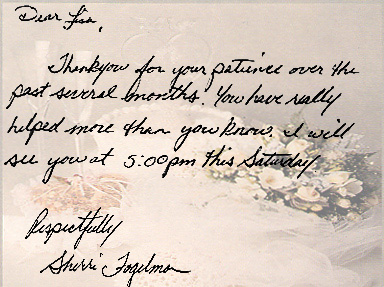 Dear Lisa,
Thankyou for your patience over the
past several months. You have really
helped more than you know. I will
see you at 5:00pm this Saturday.
Respectfully
Sherri Fogelman